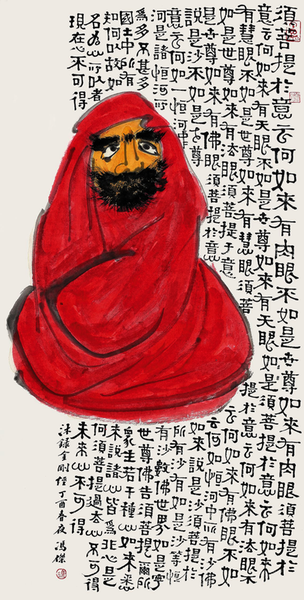 須菩提於意云何如來有肉眼不如是世尊如來有肉眼須菩提於
意云何如來有天眼不如是世尊如來有天眼須菩提於意云何如來
有慧眼不如是世尊如來有慧眼須菩提於意云何如來有法眼不
如是世尊如來有法眼須菩提於意云何如來有佛眼不
如是世尊如來有佛眼須菩提於意云何如恒河中所有沙佛
說是沙不如是世尊如來說是沙須菩提於
意云何如一恒河中所有沙有如是沙等恒
河是諸恒河所有沙數佛世界如是寧
為多不甚多世尊佛告須菩提爾所
國土中所有眾生若干種心如來悉
知何以故如來說諸心皆為非心是
名為心所以者何須菩提過去心不可得
現在心不可得未來心不可得
錄金剛經丁酉春夜馮傑